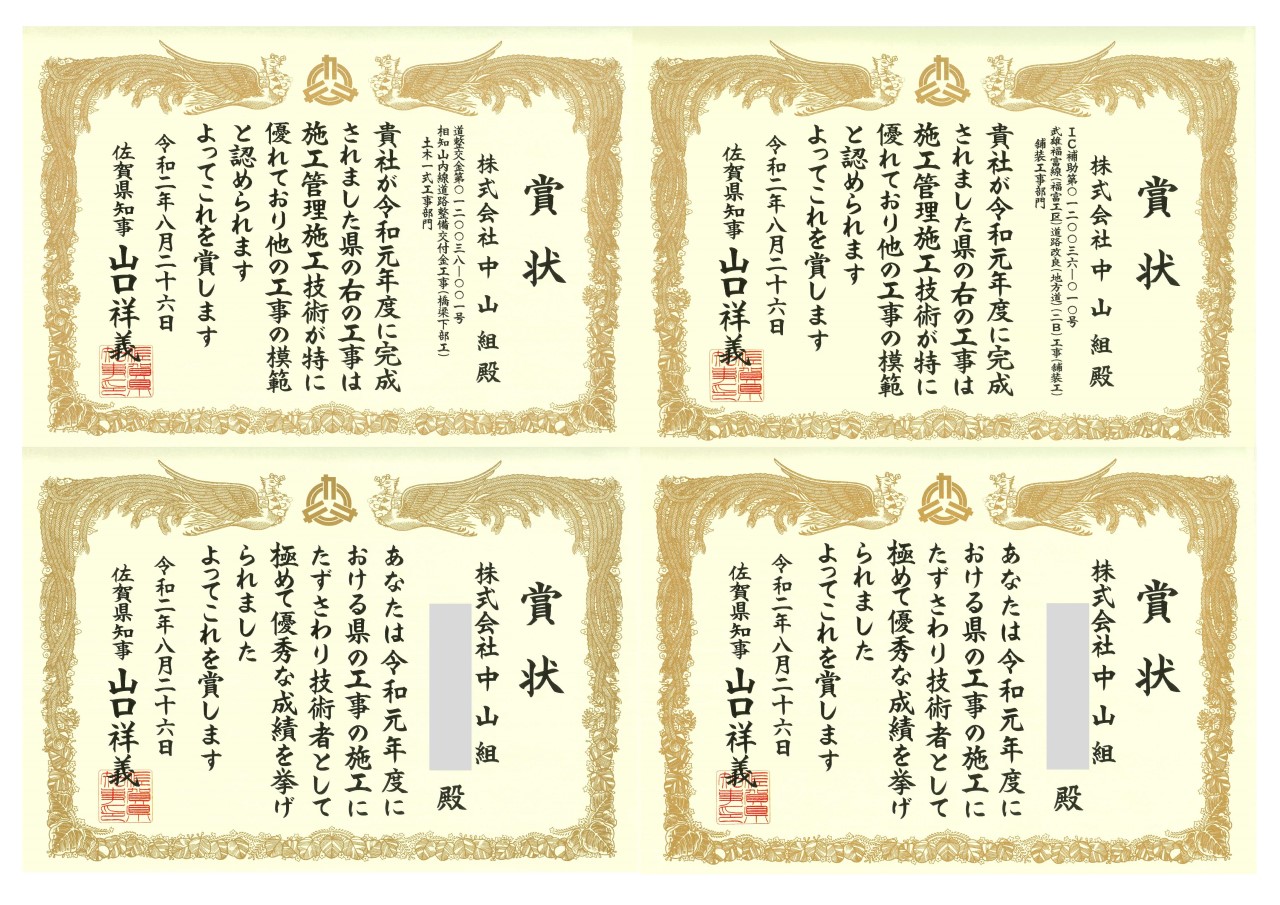 賞状
株式会社 中山組 殿
道整交金第〇一二〇〇三八―〇〇一号
相知山内線道路整備交付金工事(橋梁下部工)
土木一式工事部門
貴社が令和元年度に完成
されました県の右の工事は
施工管理施工技術が特に
優れており他の工事の模範
と認められます
よってこれを賞します
令和二年八月二十六日
佐賀県知事 山口祥義
賞状
株式会社 中山組 殿
IC補助第〇一二〇〇三六―〇一〇号
武雄福富線(福富工区)道路改良(地方道)(二B)工事(舗装工)
舗装工事部門
貴社が令和元年度に完成
されました県の右の工事は
施工管理施工技術が特に
優れており他の工事の模範
と認められます
よってこれを賞します
令和二年八月二十六日
佐賀県知事 山口祥義
賞状
株式会社 中山組
殿
あなたは令和元年度に
おける県の工事の施工に
たずさわり技術者として
極めて優秀な成績を挙げ
られました
よってこれを賞します
令和二年八月二十六日
佐賀県知事 山口祥義
賞状
株式会社 中山組
殿
あなたは令和元年度に
おける県の工事の施工に
たずさわり技術者として
極めて優秀な成績を挙げ
られました
よってこれを賞します
令和二年八月二十六日
佐賀県知事 山口祥義